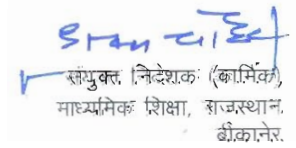 संयुक्त निदेशक (कार्मिक),
माध्यमिक शिक्षा, राजस्थान,
बीकानेर.